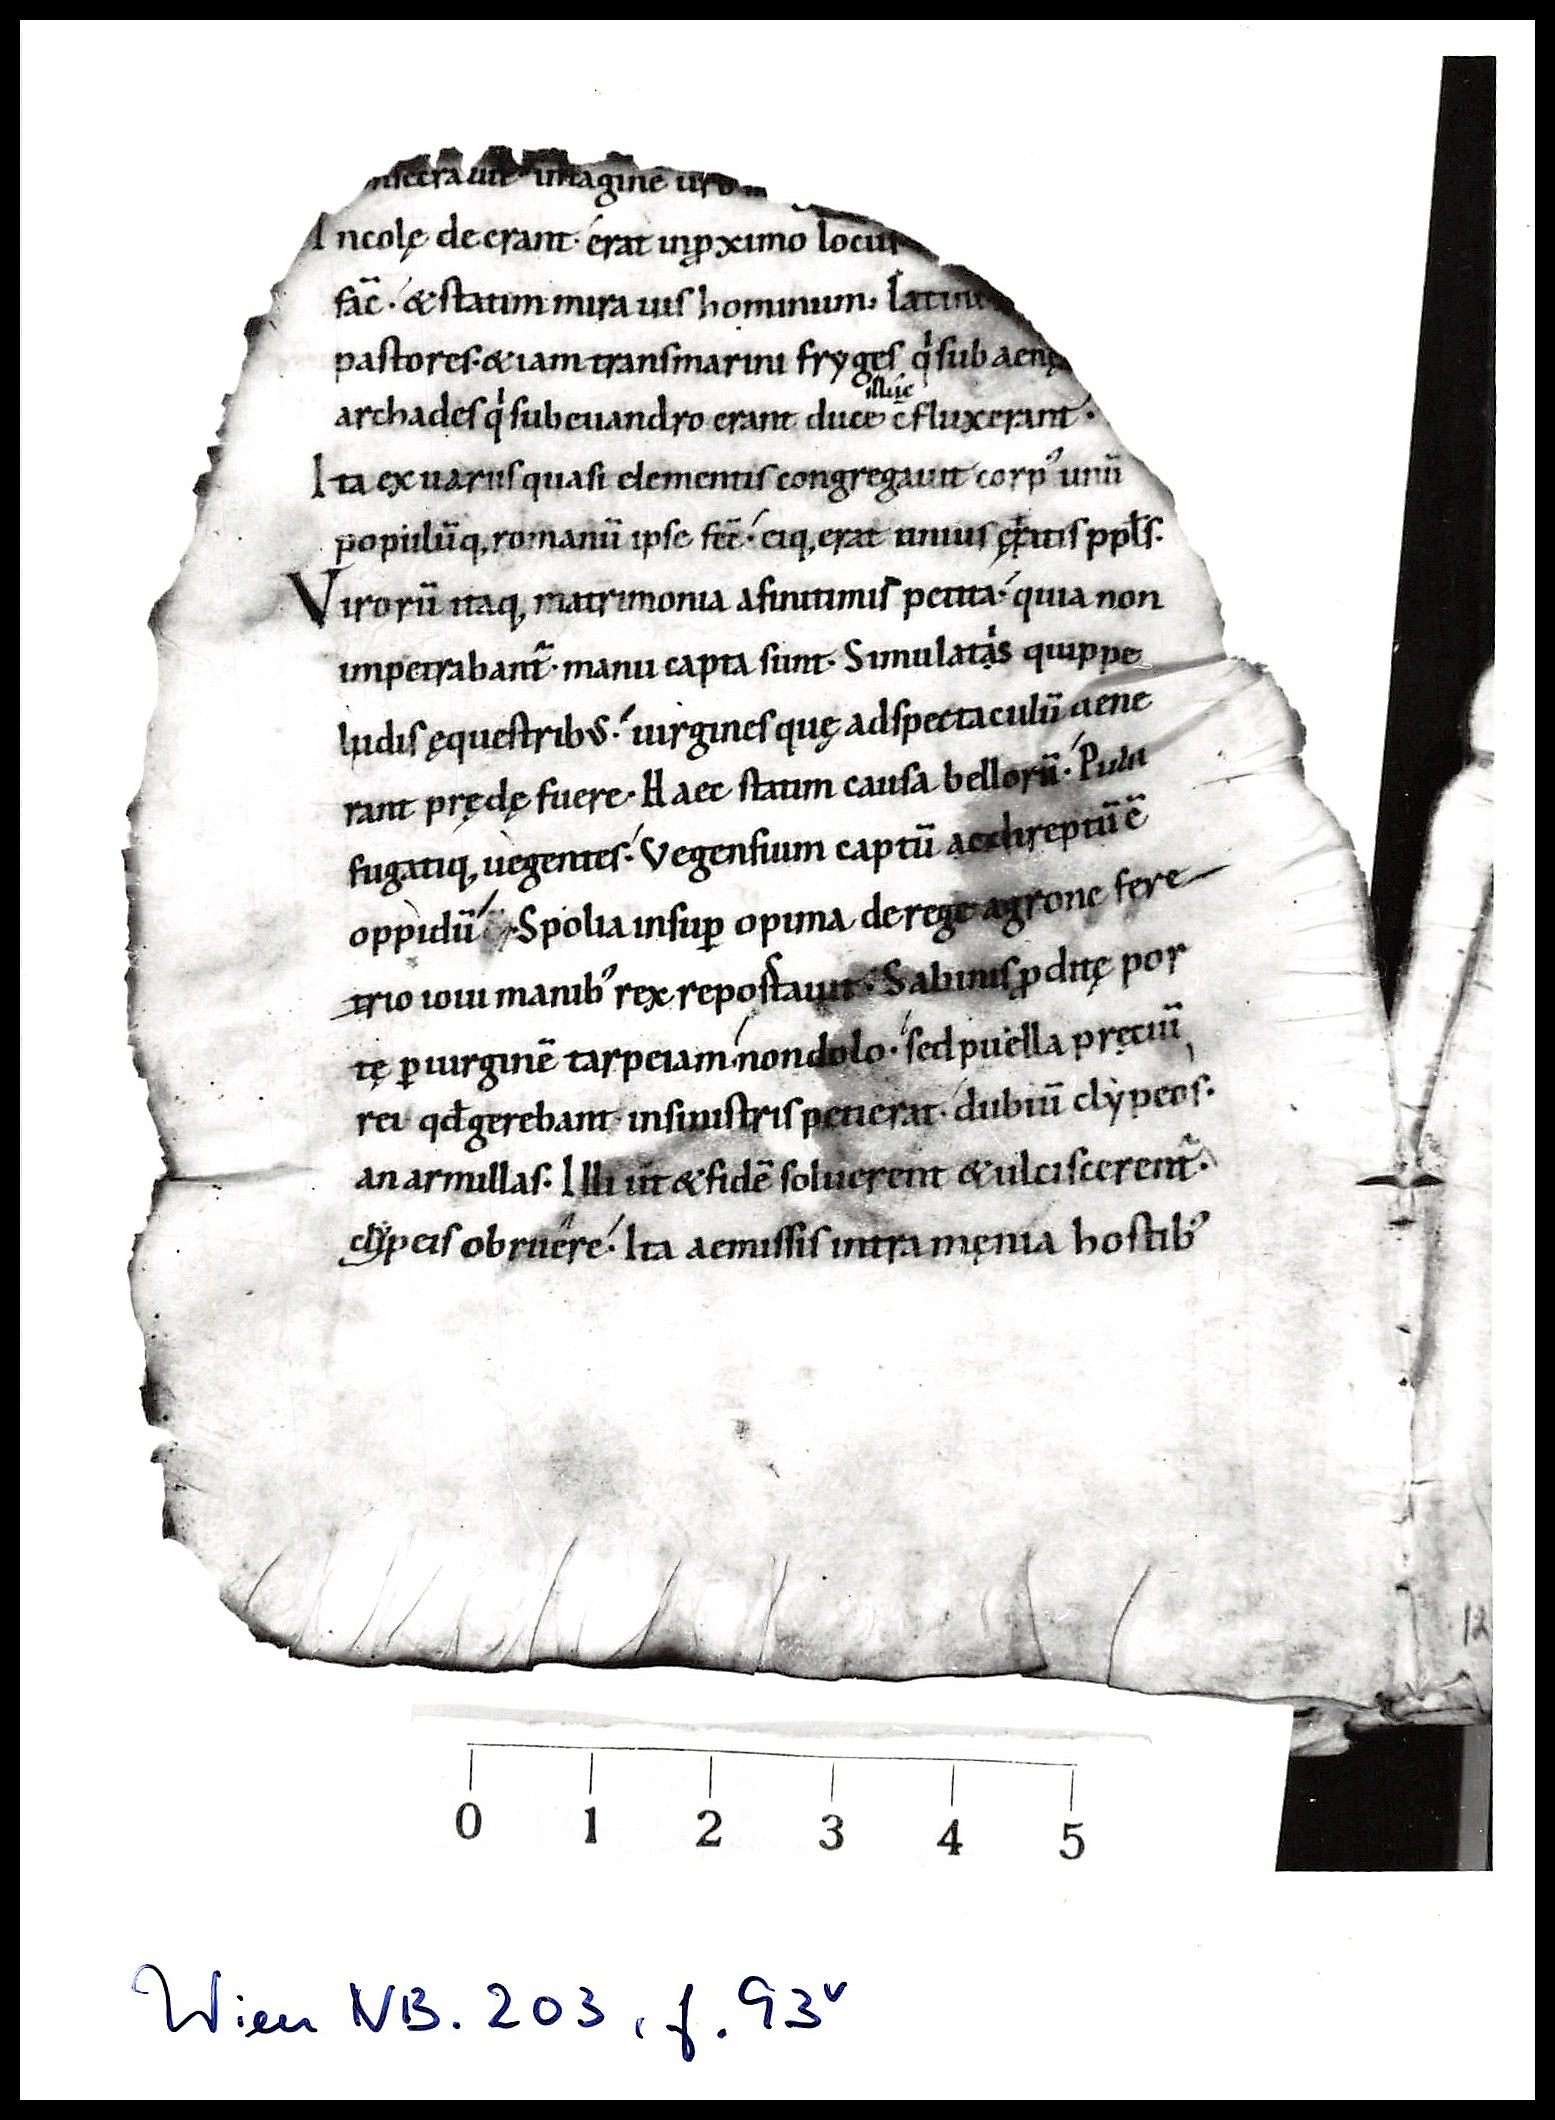 nsecrauit imagine urb
Incolę de erant· erat inꝓximo locus
fac̄· & statim mira uis hominum· Latini
pastores· & iam transmarini fryges qͥ sub aenę
illuc
archades qͥ sub euandro erant duce cfluxerant·
Ita ex uariis quasi elementis congregauit corpꝰ unū
populūq, romanū ipse fec̄· eiq, erat unius ętatis ppl̄s·
Virorū itaq, matrimonia afinitimis petita· quia non
impetrabant̄· manu capta sunt· Simulatis quippe
ludis ęquestribS· uirgines quę adspectaculū aene
rant prędę fuere· Haec statim causa bellorū· Pulsi
fugatiq, uegentes· Vegensium captū acdireptū ē
oppidū· Spolia insuꝑ opima derege agrone fere
trio ioui manibꝰ rex repostauit· Sabinis ꝓditę por
tę ꝑ uirginē tarpeiam nondolo· sed puella prętiū
rei qđ gerebant insinistris petierat· dubiū clypeos·
an armillas· Illi ut & fidē soluerent & ulciscerent̄·
clypeis obruere· Ita aemissis intra męnia hostibꝰ
12
0 1 2 3 4 5
Wien NB. 203, f. 93v